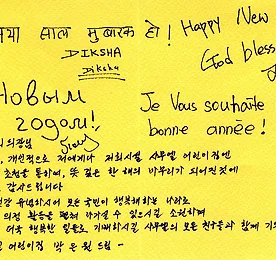 नया साल मुबारक हो!
Happy New
DIKSHA
Diksha
God bless
Новым
годом!
Je Vous souhaite
bonne année!
개인적으로 저에게나 저희시설 사무엘 어린이집엔
통하여, 뜻 깊은 한 해의 마무리가 되어진것에
감사드립니다
유념하시어 모든 국민이 행복해하는 나라로
의정 활동을 펼쳐 나가실 수 있으시길 소원하며
더욱 행복한 일들로 기대하시길 사무엘의 모든 친구들과 함께
어린이집 박 은 원 드림 -